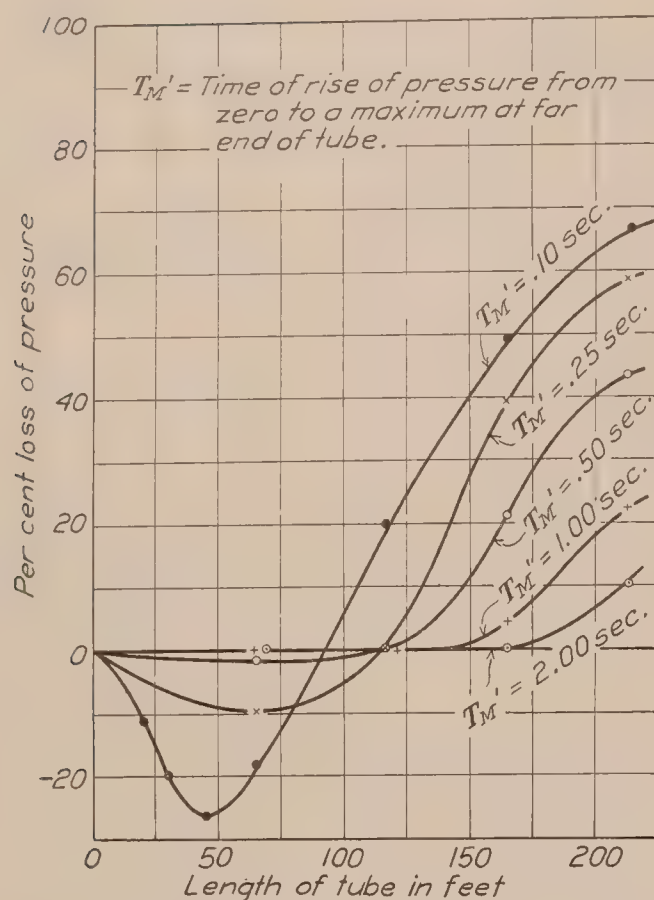 100
80
60
40
20
0
-20
Per cent loss of pressure
T_M' = Time of rise of pressure from
zero to a maximum at far
end of tube.
T_M' = .10 sec.
T_M' = .25 sec.
T_M' = .50 sec.
T_M" = 1.00 sec.
T_M' = 2.00 sec.
0 50 100 150 200
Length of tube in feet